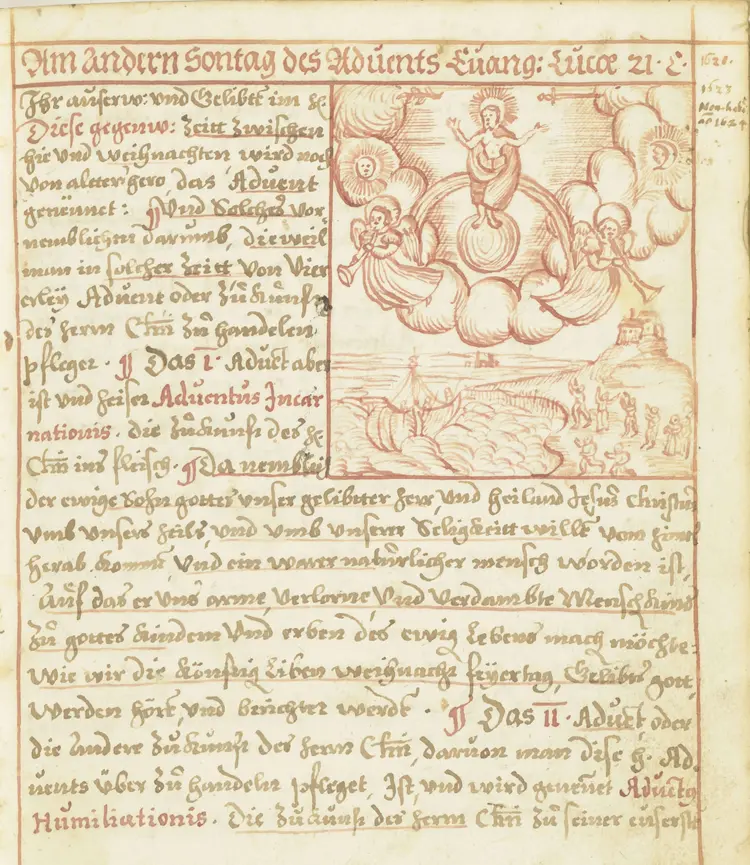 Am Andern Sontag des Aduents Euang: Lucæ 21. C.
1620.
1623
1624
Ihr auserw: und Gelibte im H:
Diese gegenw: Zeitt Zwischen
hie und weihnachten wird noch
von alters hero, das Aduent
genennet: ¶ Und Solches vor
nemblichen darumb, dieweil
man in solcher Zeitt von vier
erley Aduent oder Zukunfft
des herrn Chri Zu handelen
pfleget. ¶ Das I. Aduet aber
ist und heiset Aduentus Incar
nationis. die Zukunfft des H:
Chri ins fleisch. ¶ Da nemblich
der ewige Sohn gottes unser gelibtter herr, und heiland Jesus Christus
umb unsers heils, und umb unserer Seligkeitt wille vom himel
herab komme, und ein warer natürlicher mensch worden ist,
Auf das er uns arme, verlorne und verdambte Menschkind
Zu gottes kindern und erben des ewig lebens mach möchte:
Wie wir die künfftig liben weihnacht feyertag, Gelibts gott,
werden hört, und berichtet werdt. ¶ Das II. Aduet, oder
die Andere Zukunfft des herrn Chri, daruon man dise H. Ad
uents über Zu handeln pfleget, Ist, und wird genenet Aduetq
Humiliationis. Die Zukunfft des herrn Chri Zu seiner eusserst